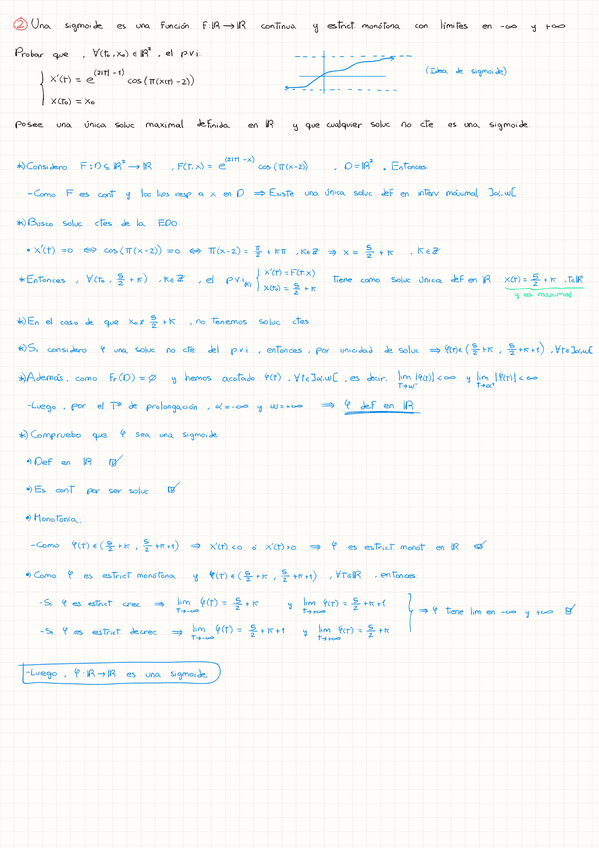 ② Una sigmoide es una función F:ℝ→ℝ continua y estrict monótona con límites en -∞ y +∞
Probar que, ∀(t₀,x₀)∈ℝ², el p.v.i:
x'(t) = e^(2|t|-1) cos(π(x(t)-2))
x(t₀) = x₀
(Idea de sigmoide)
posee una única soluc maximal definida en ℝ y que cualquier soluc no cte es una sigmoide
*) Considero F:D⊆ℝ²→ℝ, F(t,x) = e^(2|t|-x) cos(π(x-2)), D=ℝ². Entonces:
-Como F es cont y loc lips resp a x en D ⇒ Existe una única soluc def en interv máximal ]α,ω[
*) Busco soluc ctes de la EDO:
• x'(t)=0 ⇔ cos(π(x-2))=0 ⇔ π(x-2) = π/2 + kπ, k∈ℤ ⇒ x = 5/2 + k, k∈ℤ
* Entonces, ∀(t₀, 5/2 + k), k∈ℤ, el p.v.i(k) { x'(t) = F(t,x) x(t₀) = 5/2 + k tiene como soluc única def en ℝ x(t) = 5/2 + k, t∈ℝ
y es maximal
*) En el caso de que x₀≠ 5/2 + k, no tenemos soluc ctes
*) Si considero φ una soluc no cte del p.v.i, entonces, por unicidad de soluc ⇒ φ(t)∈(5/2+k, 5/2+k+1), ∀t∈]α,ω[
*) Además, como Fr(D)=∅ y hemos acotado φ(t), ∀t∈]α,ω[, es decir, lim t→ω⁻ |φ(t)|<∞ y lim t→α⁺ |φ(t)|<∞
-Luego, por el Tª de prolongación, α=-∞ y ω=+∞ ⇒ φ def en ℝ
*) Compruebo que φ sea una sigmoide:
•) Def en ℝ ☑
•) Es cont por ser soluc ☑
•) Monotonía:
-Como φ(t)∈(5/2+k, 5/2+k+1) ⇒ x'(t)<0 ó x'(t)>0 ⇒ φ es estrict monot en ℝ ☑
•) Como φ es estrict monótona y φ(t)∈(5/2+k, 5/2+k+1), ∀t∈ℝ, entonces:
-Si φ es estrict crec ⇒ lim t→-∞ φ(t) = 5/2+k y lim t→+∞ φ(t) = 5/2+k+1
⇒ φ tiene lim en -∞ y +∞ ☑
-Si φ es estrict decrec ⇒ lim t→-∞ φ(t) = 5/2+k+1 y lim t→+∞ φ(t) = 5/2+k
-Luego, φ:ℝ→ℝ es una sigmoide